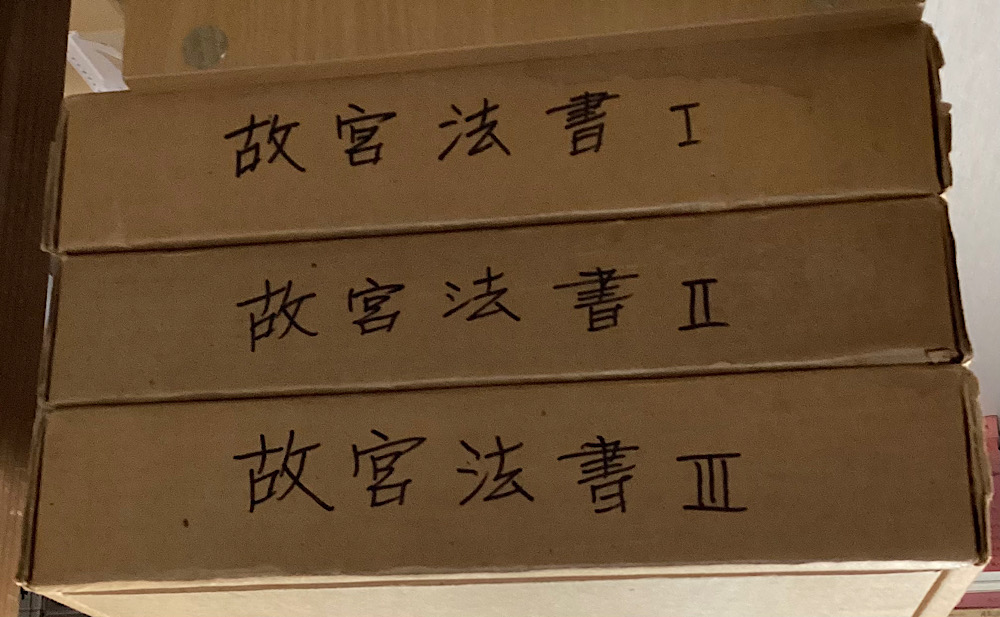 故宮法書 I
故宮法書 II
故宮法書 III